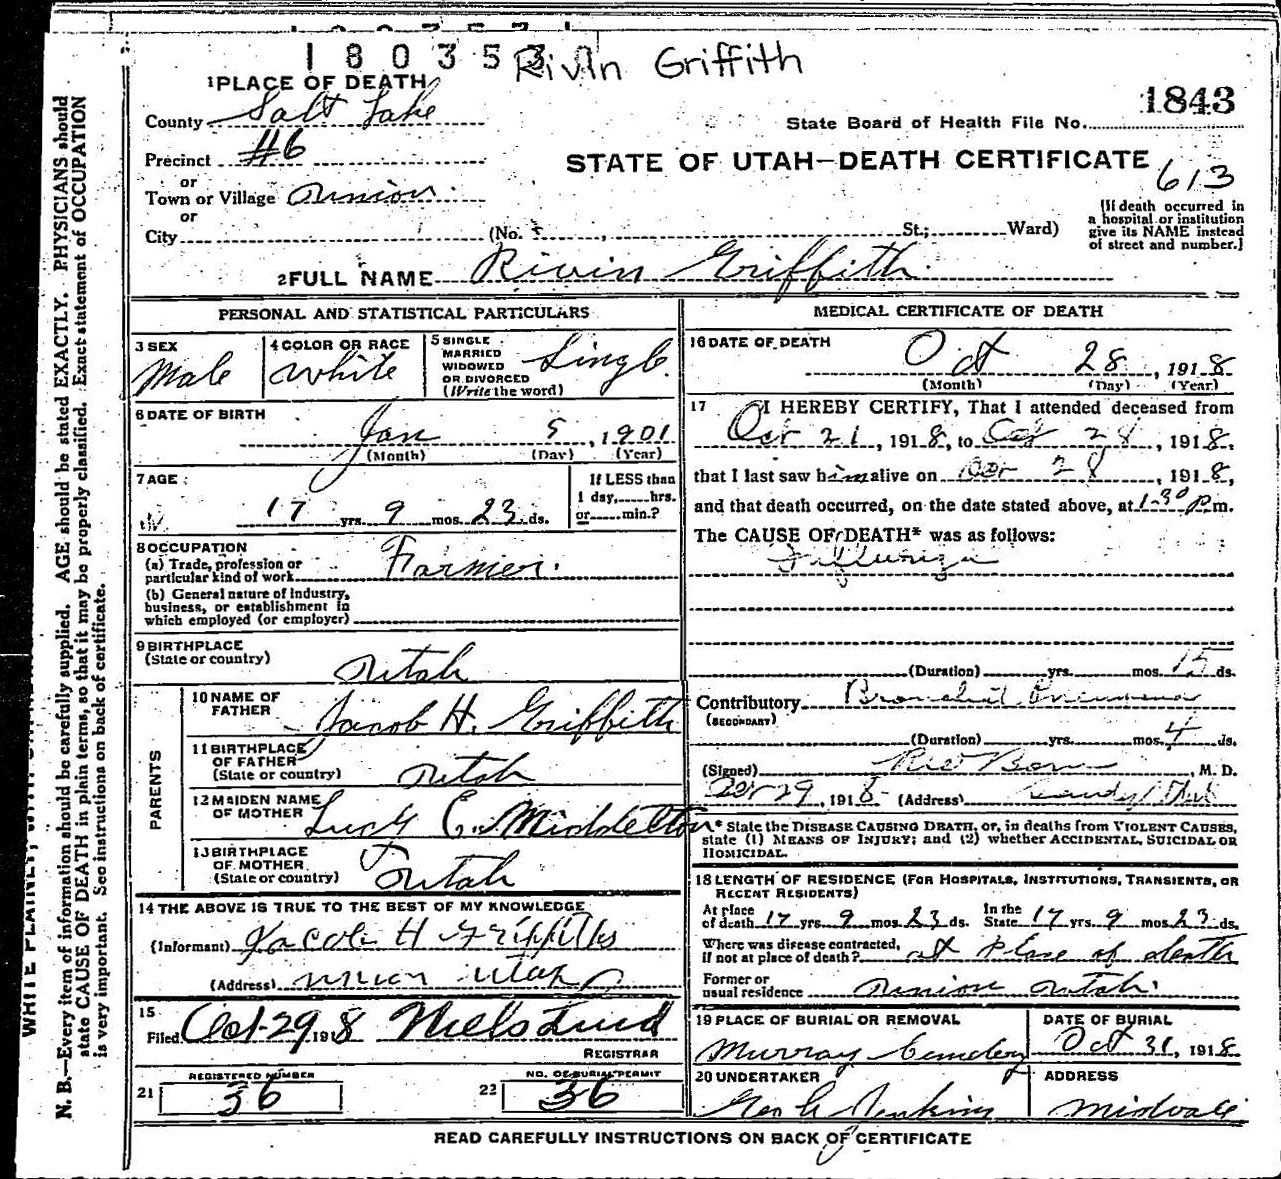 180353
Rivin Griffith
1 PLACE OF DEATH
1843
County Salt Lake
State Board of Health File No.
Precinct #6
STATE OF UTAH—DEATH CERTIFICATE
613
or
Town or Village Union
or
City (No. , St.; Ward)
[If death occurred in
a hospital or institution
give its NAME instead
of street and number.]
2 FULL NAME Rivin Griffith
PERSONAL AND STATISTICAL PARTICULARS
3 SEX
Male
4 COLOR OR RACE
White
5 SINGLE
MARRIED
WIDOWED
OR DIVORCED
(Write the word)
Single
6 DATE OF BIRTH
Jan 5, 1901
(Month) (Day) (Year)
7 AGE
17 yrs. 9 mos. 23 ds.
If LESS than
1 day, hrs.
or min.?
8 OCCUPATION
(a) Trade, profession or
particular kind of work Farmer.
(b) General nature of Industry,
business, or establishment in
which employed (or employer)
9 BIRTHPLACE
(State or country)
Utah
PARENTS
10 NAME OF
FATHER
Jacob H. Griffith
11 BIRTHPLACE
OF FATHER
(State or country) Utah
12 MAIDEN NAME
OF MOTHER Lucy E. Middleton
13 BIRTHPLACE
OF MOTHER
(State or country) Utah
14 THE ABOVE IS TRUE TO THE BEST OF MY KNOWLEDGE
(Informant) Jacob H Griffiths
(Address) Union Utah
15
Filed Oct-29 1918 Niels Lind
REGISTRAR
REGISTERED NUMBER
21 36
NO. OF BURIAL PERMIT
22 36
MEDICAL CERTIFICATE OF DEATH
16 DATE OF DEATH
Oct 28, 1918
(Month) (Day) (Year)
17 I HEREBY CERTIFY, That I attended deceased from
Oct 21, 1918, to Oct 28, 1918,
that I last saw him alive on Oct 28, 1918,
and that death occurred, on the date stated above, at 1-30 P m.
The CAUSE OF DEATH* was as follows:
Influenza
(Duration) yrs. mos. 15 ds.
Contributory Bronchial Pneumonia
(SECONDARY)
(Duration) yrs. mos. 4 ds.
(Signed) , M. D.
Oct 29, 1918 (Address) Sandy Utah
* State the DISEASE CAUSING DEATH, or, in deaths from VIOLENT CAUSES,
state (1) MEANS OF INJURY; and (2) whether ACCIDENTAL, SUICIDAL OR
HOMICIDAL.
18 LENGTH OF RESIDENCE (FOR HOSPITALS, INSTITUTIONS, TRANSIENTS, OR
RECENT RESIDENTS)
At place
of death 17 yrs. 9 mos. 23 ds. In the
State 17 yrs. 9 mos. 23 ds.
Where was disease contracted,
if not at place of death? at place of death
Former or
usual residence Union Utah.
19 PLACE OF BURIAL OR REMOVAL
Murray Cemetery
DATE OF BURIAL
Oct 31, 1918
20 UNDERTAKER
Geo Jenkins
ADDRESS
Midvale
READ CAREFULLY INSTRUCTIONS ON BACK OF CERTIFICATE
N. B.—Every item of information should be carefully supplied. AGE should be stated EXACTLY. PHYSICIANS should
state CAUSE OF DEATH in plain terms, so that it may be properly classified. Exact statement of OCCUPATION
is very important. See instructions on back of certificate.
WRITE PLAINLY,